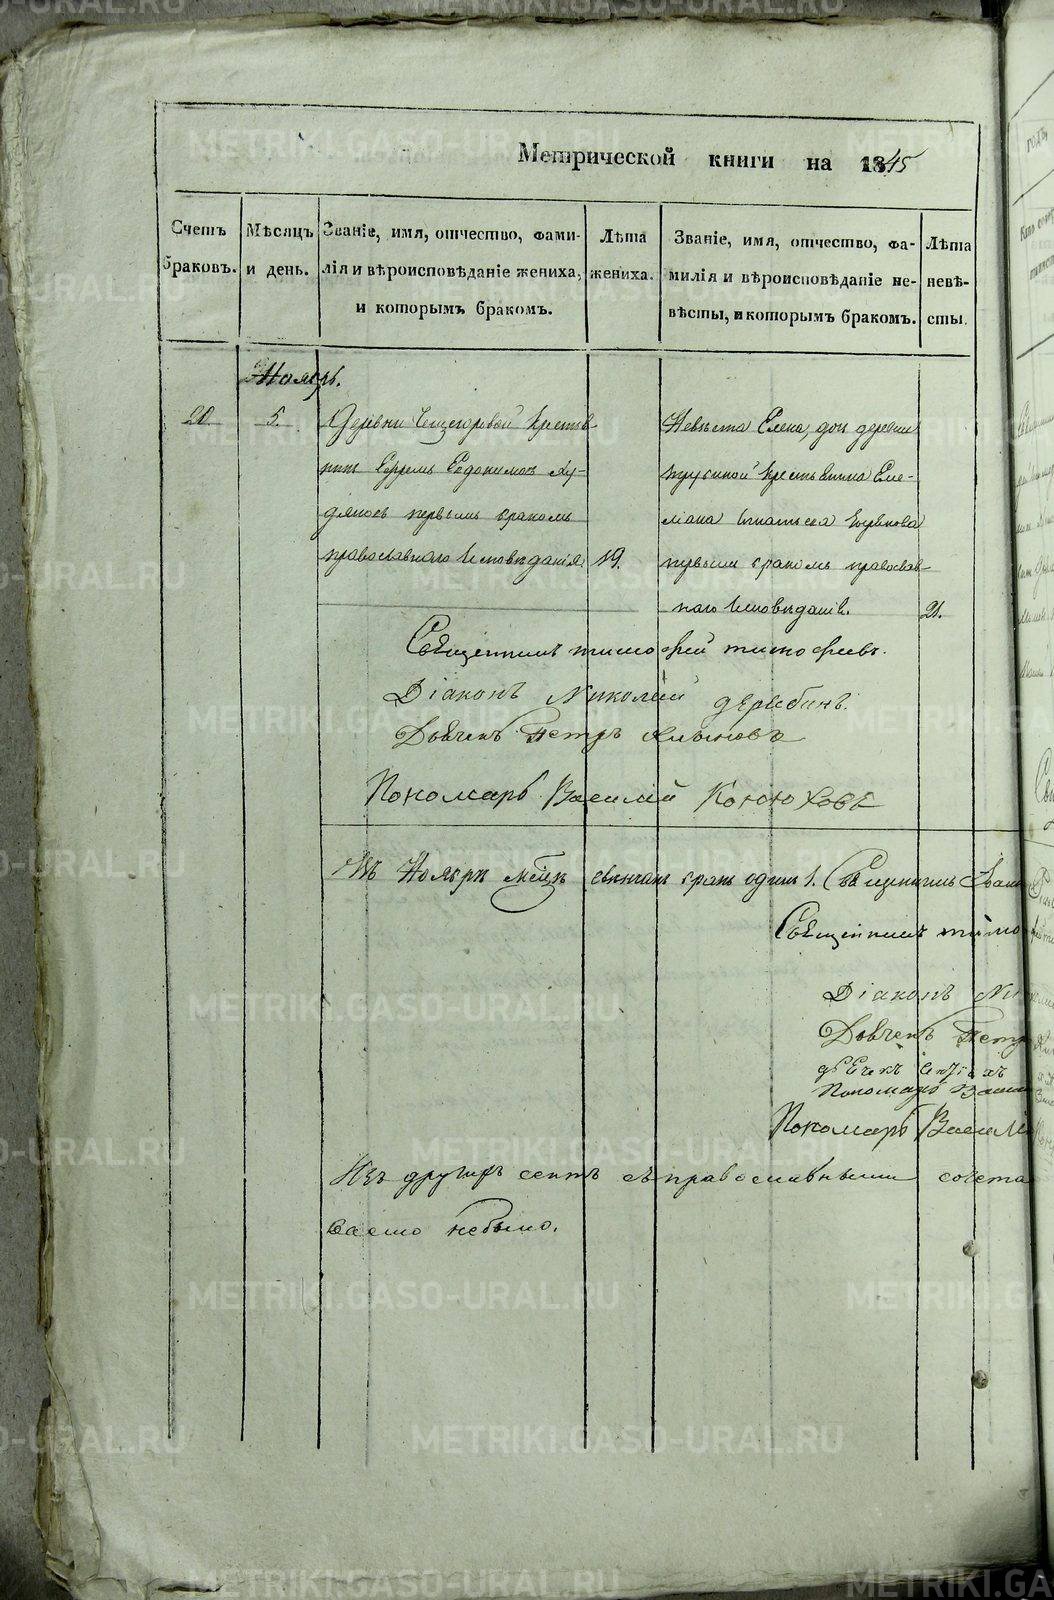 Метрической книги на 1845
Счетъ браковъ.
Мѣсяцъ и день.
Званіе, имя, отчество, фами-
лія и вѣроисповѣданіе жениха,
и которымъ бракомъ.
Лѣта
жениха.
Званіе, имя, отчество, фа-
милія и вѣроисповѣданіе не-
вѣсты, и которымъ бракомъ.
Лѣта
невѣ-
сты.
Ноябрь.
20
5.
Деревни крестья-
нинъ Ефремъ Евдокимовъ Ху-
дяковъ первымъ бракомъ
православнаго исповѣданія.
19.
Невѣста Елена, дочь деревни
крестьянина Еме-
ліана Игнатьева
первымъ бракомъ православ-
наго исповѣданія.
21.
Священникъ тимофей тимофеевъ.
Діаконъ Николай дерябинъ.
Дьячекъ Петръ
Пономарь Василій Конюховъ
Въ Ноябрѣ мѣсяцѣ вѣнчанъ бракъ одинъ 1. Священникъ
Священникъ тимо
Діаконъ Ни
Дьячекъ Петр
дьячекъ
Пономарь Васи
Пономарь Василі
Изъ другихъ сектъ съ православными сочета
ваемо небыло.
METRIKI.GASO-URAL.RU